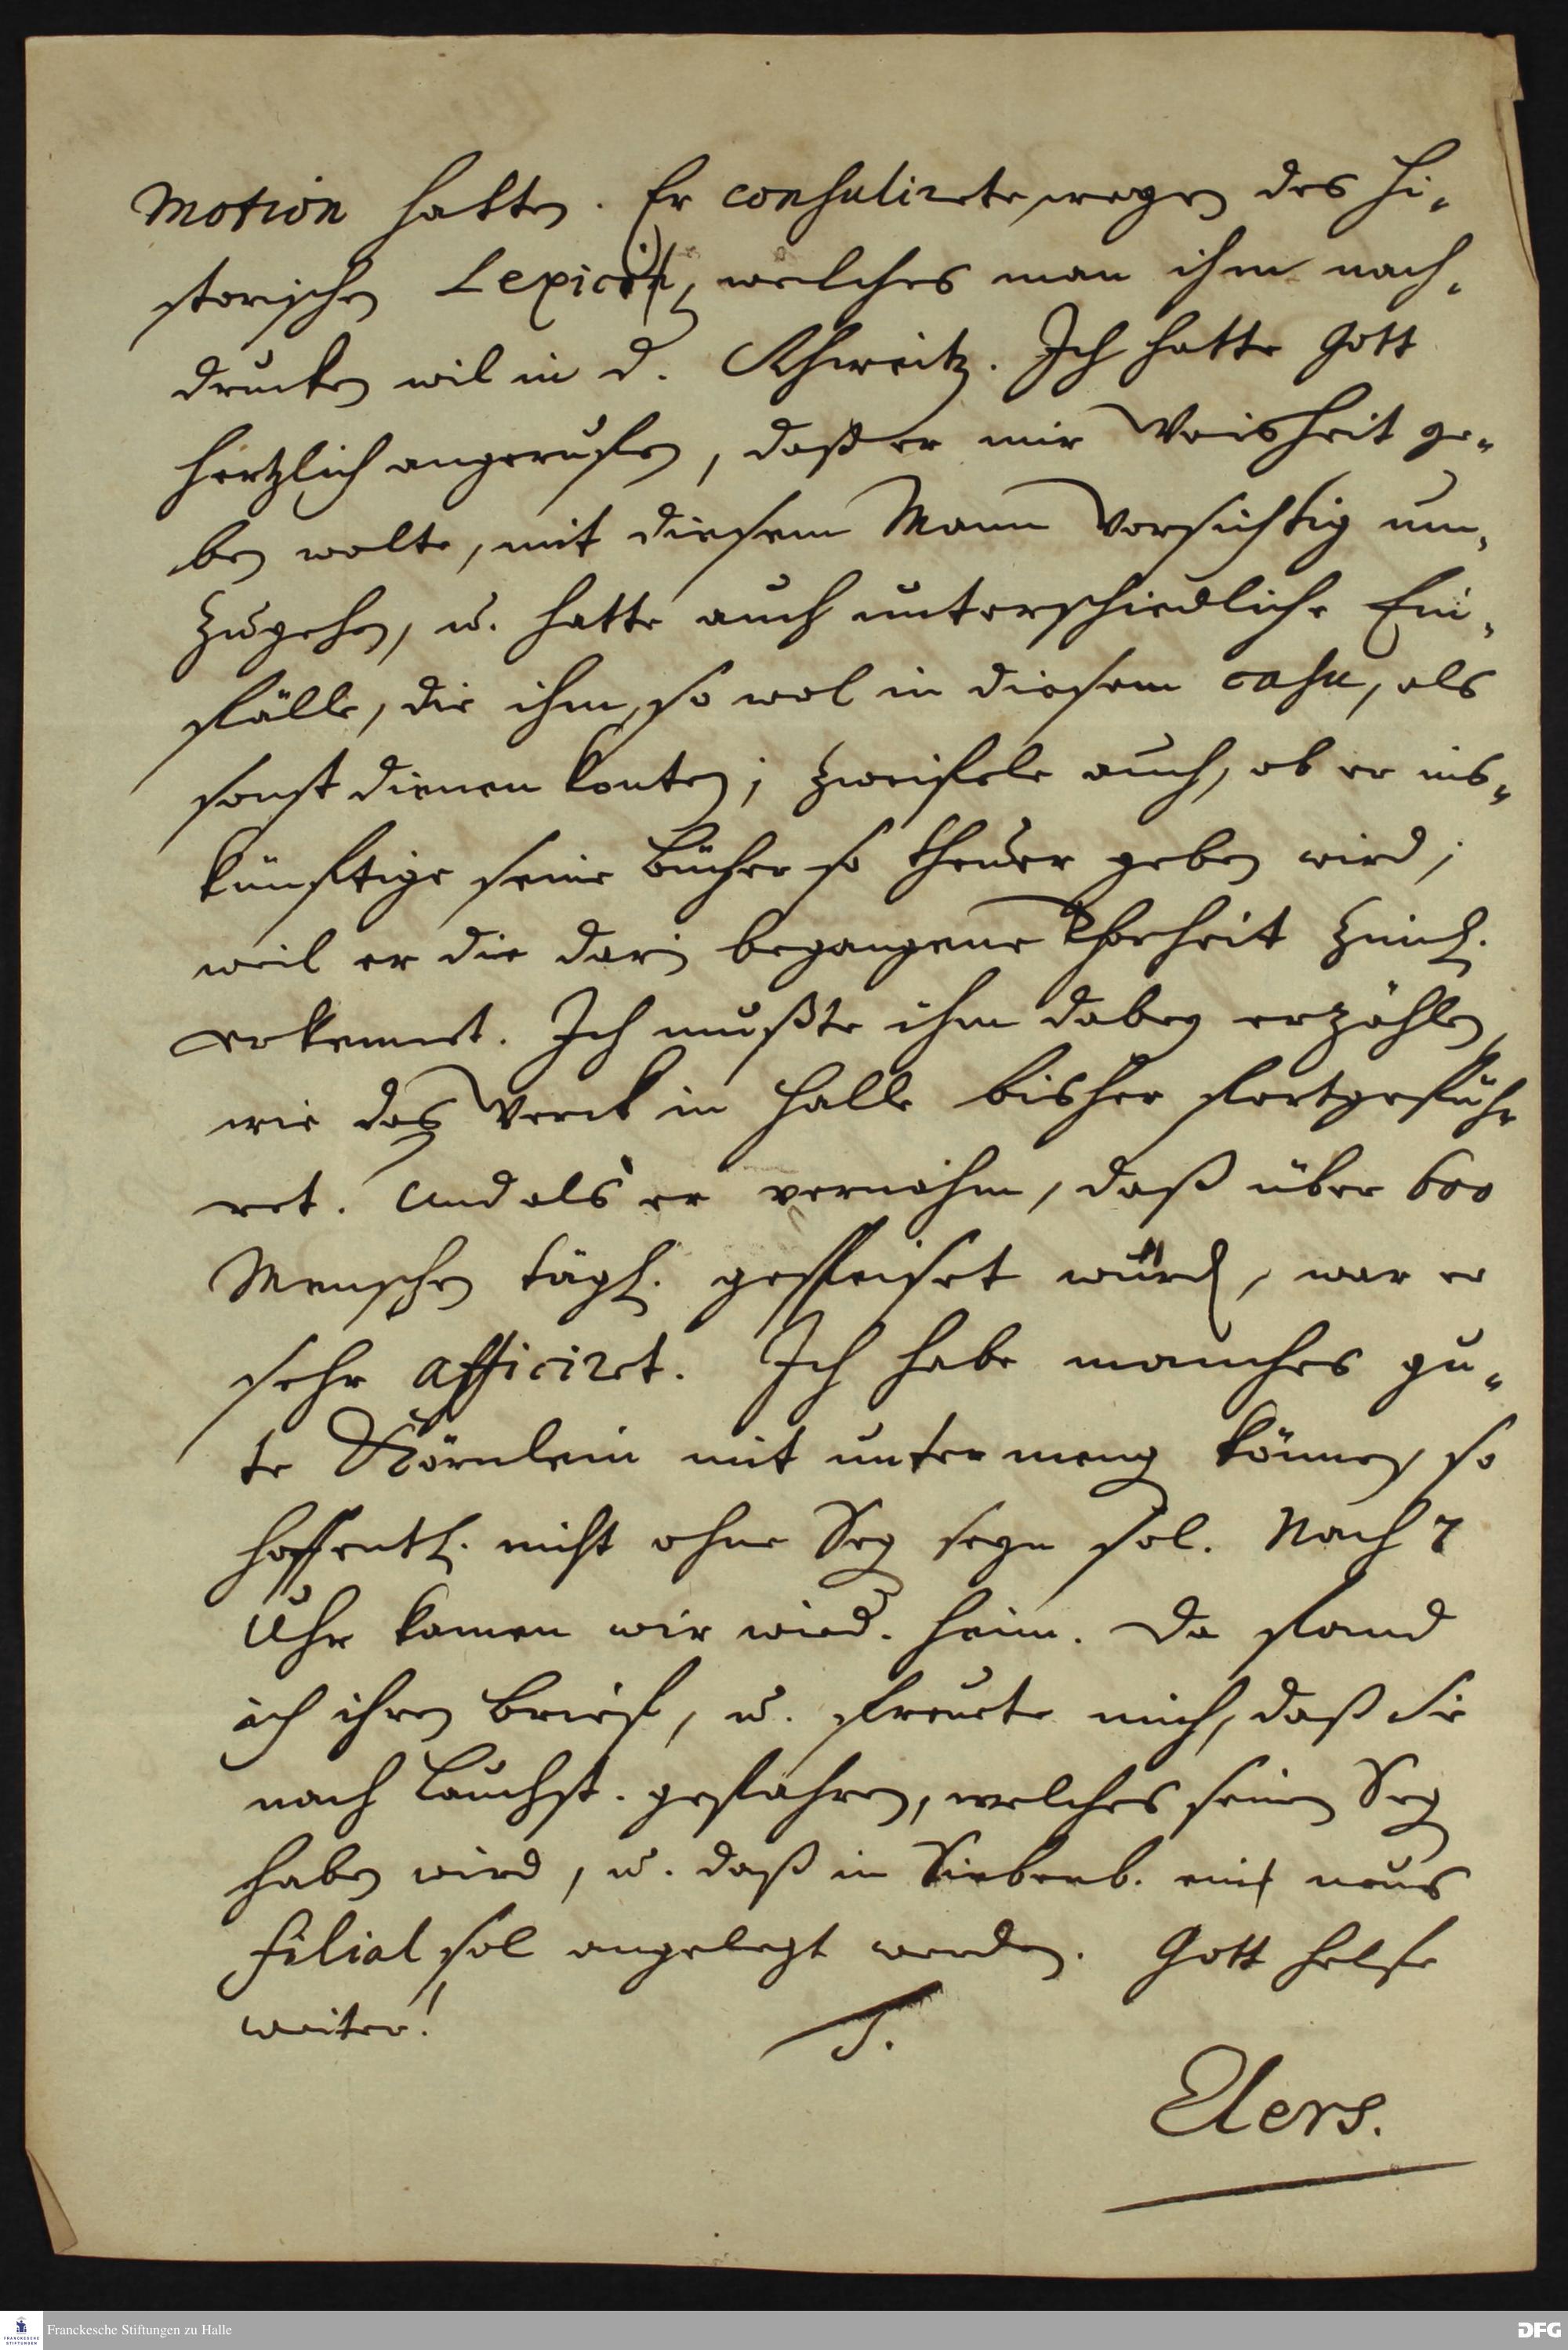 Motion hatten. Er consulirete wegen des Hi-
storischen Lexici, welches man ihm nach-
drucken wil in d. Schweitz. Ich hatte Gott
hertzlich angeruffen, daß er mir Weisheit ge-
ben wolte, mit diesem Mann vorsichtig um-
zugehen, u. hatte auch unterschiedliche Ein-
fälle, die ihm, so wol in diesem casu, als
sonst dienen konten; zweifele auch, ob er ins-
künftige seine Bücher so theuer geben wird;
weil er die darin begangene Thorheit ziml.
erkennet. Ich mußte ihm dabey erzählen,
wie das Werck in Halle bisher fortgefüh-
ret. Und als er vernahm, daß über 600
Menschen tägl. gespeiset würden, war er
sehr afficiret. Ich habe manches gu-
te Körnlein mit untermengen können, so
hoffentl. nicht ohne Segen seyn sol. Nach 7
Uhr kamen wir wied. heim. Da fand
ich ihren Brief, u. freuete mich, daß Sie
nach Lauchst. gefahren, welches seinen Segen
haben wird, u. daß in Siebenb. ein neues
Filial sol angelegt werden. Gott helfe
weiter! T.
Elers.
Franckesche Stiftungen zu Halle
DFG